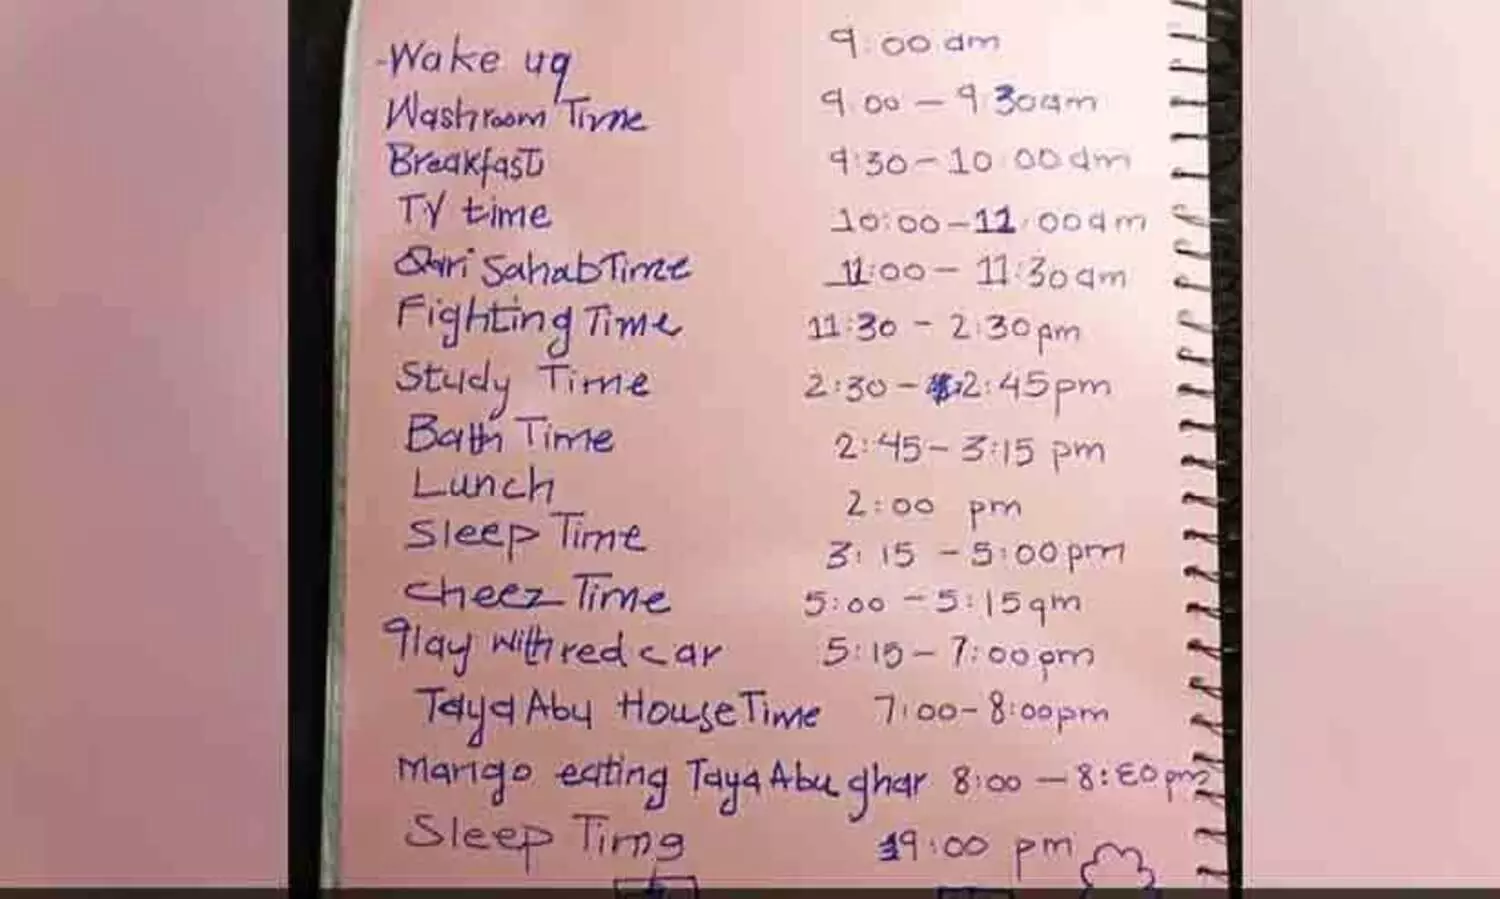 Wake uq 9:00 am
Washroom Time 9:00 - 9:30am
Breakfast 9:30 - 10:00am
TV time 10:00 - 11:00am
Qari Sahab Time 11:00 - 11:30am
Fighting Time 11:30 - 2:30pm
Study Time 2:30 - 2:45pm
Bath Time 2:45 - 3:15 pm
Lunch 2:00 pm
Sleep Time 3:15 - 5:00pm
cheez Time 5:00 - 5:15qm
qlay with red car 5:15 - 7:00pm
Taya Abu House Time 7:00 - 8:00pm
Mango eating Taya Abu ghar 8:00 - 8:30pm
Sleep Time 9:00 pm